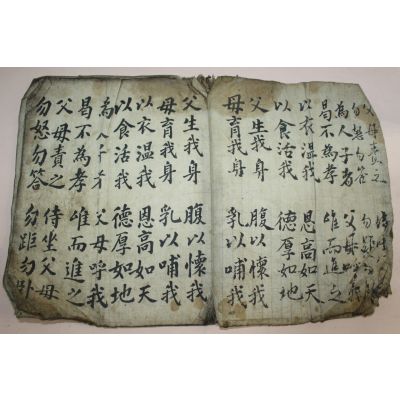 父母責之 侍坐
勿怒勿答 勿踞勿
為人子者 父母呼我
曷不為孝 唯而進之
以衣温我 恩高如天
以食活我 德厚如地
父生我身 腹以懷我
母育我身 乳以哺我
父生我身 腹以懷我
母育我身 乳以哺我
以衣温我 恩高如天
以食活我 德厚如地
為人子 父母呼我
曷不為孝 唯而進之
父母責之 侍坐父母
勿怒勿答 勿距勿卧